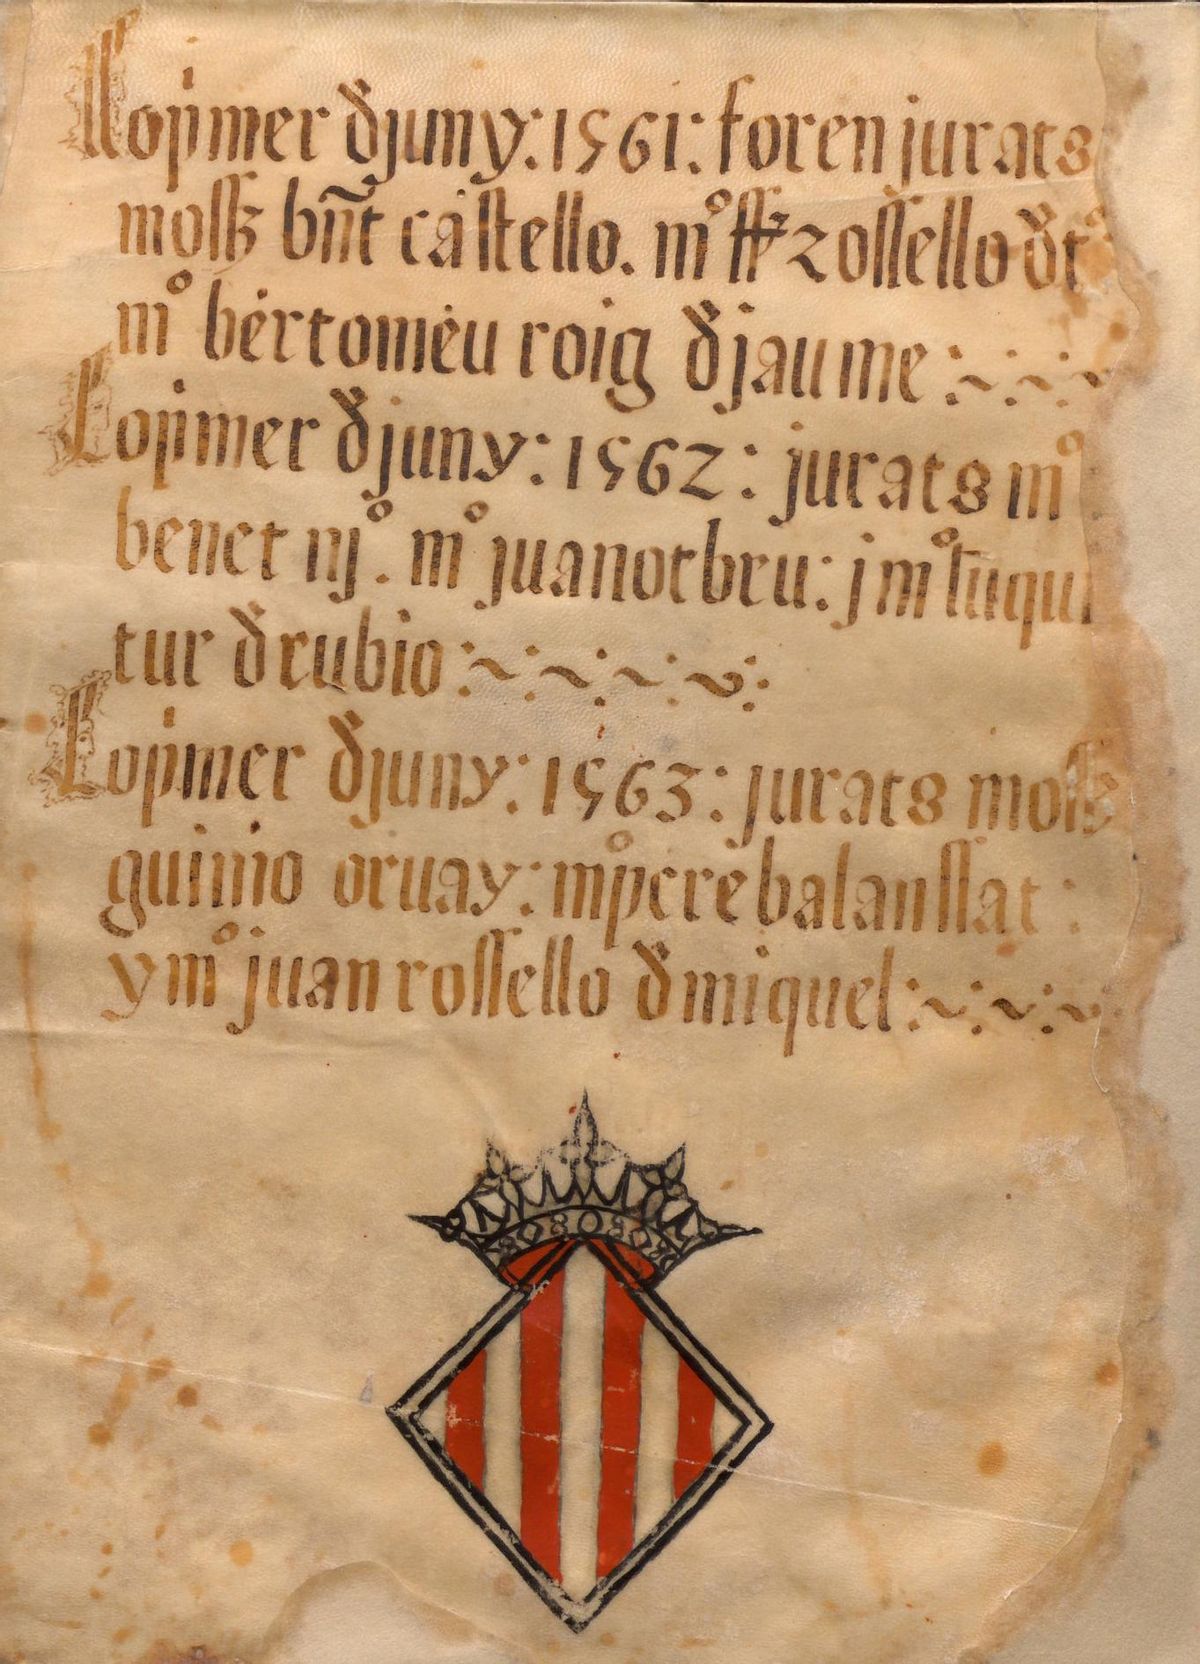 Lo pͥmer đ juny: 1561: foren jurats
moſſẜ bn̄t caſtello. mº ffz roſſello đ t
mº bertomeu roig đ jaume:~:~:~
Lo pͥmer đ juny: 1562: jurats mº
benet nj.º mº juanot bru: j mº
tur đ rubio:~:~:~:~:
Lo pͥmer đ juny: 1563: jurats moſſẜ
guinio oruay: mº pere balanſſat:
y mº juan roſſello đ miquel:~:~:~